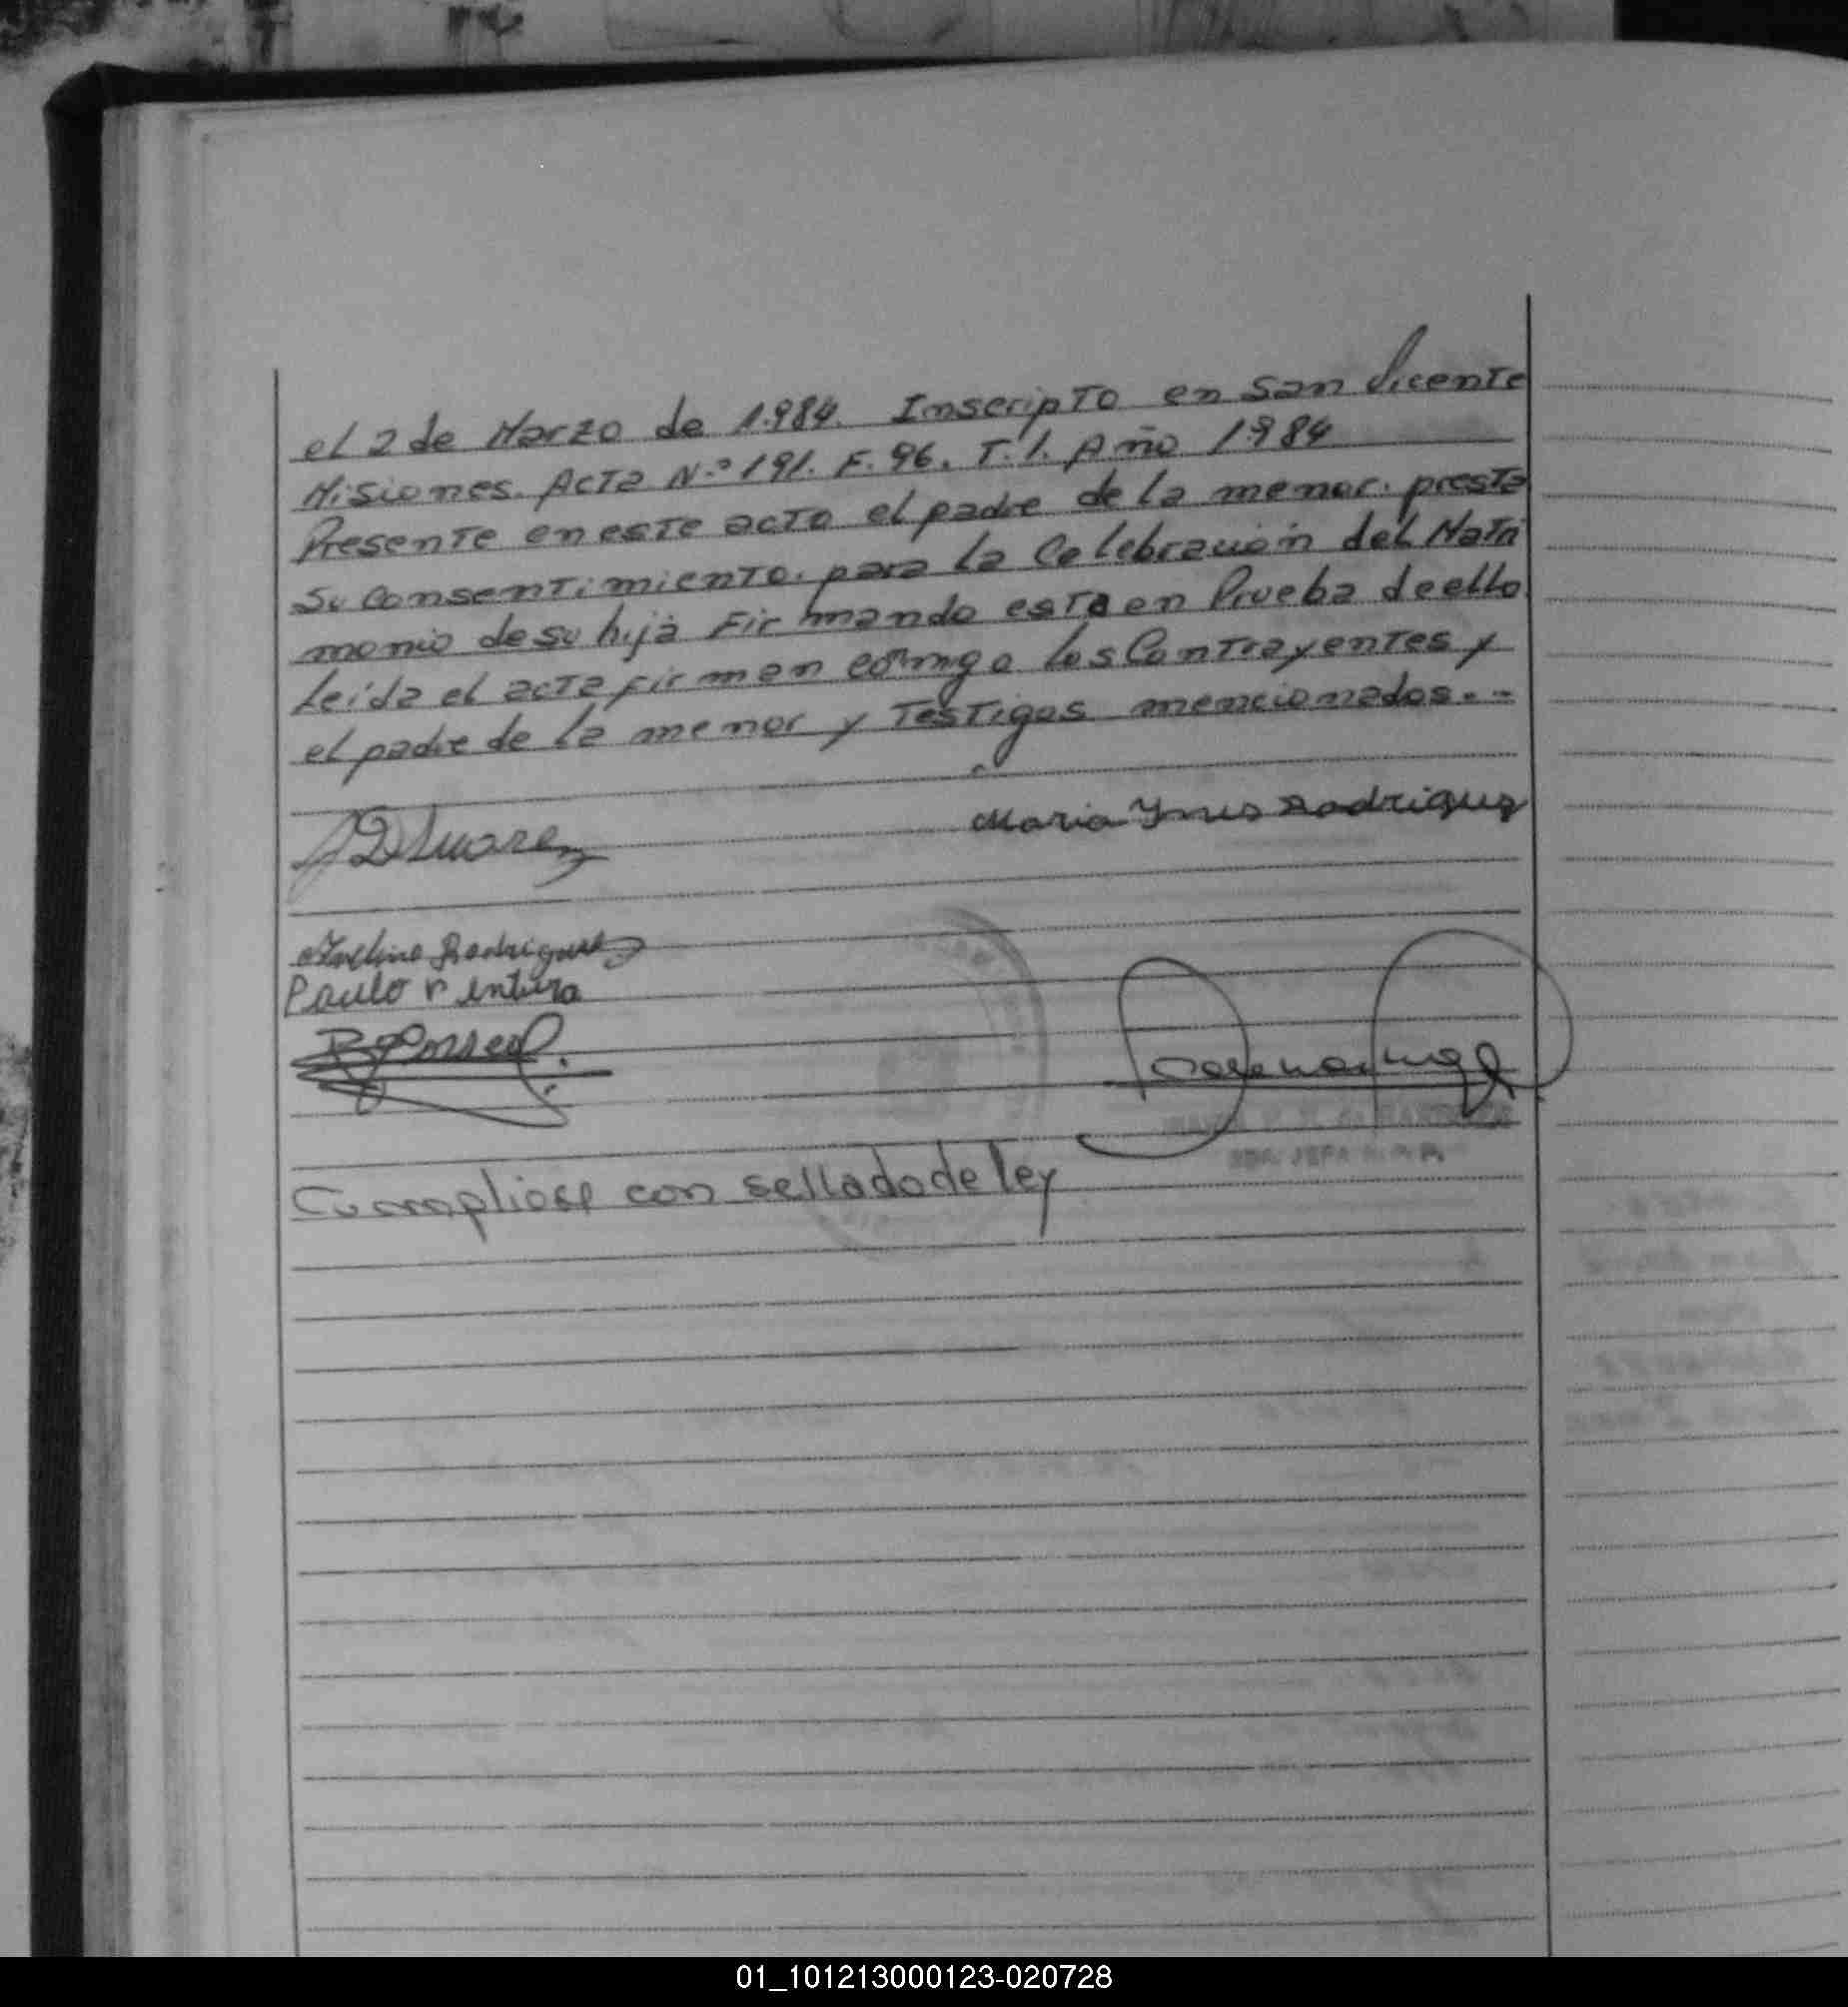 el 2 de Marzo de 1.984. Inscripto en San Vicente
Misiones. Acta N.º 191. F. 96. T. 1. Año 1984
Presente en este acto el padre de la menor. presta
su consentimiento. para la Celebración del Matri
monio de su hija Firmando esta en Prueba de ello
Leida el acta firman conmigo los Contrayentes y
el padre de la menor y Testigos mencionados. -
Suarez
Maria Ines Rodriguez
Rodriguez
Paulo Ventura
Cumpliose con sellado de ley
01_101213000123-020728